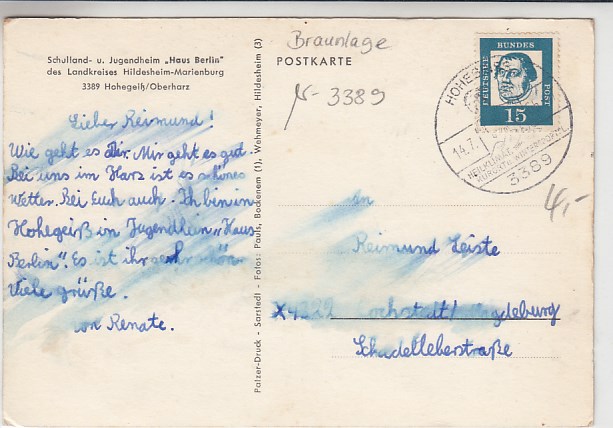 Schulland- u. Jugendheim „Haus Berlin"
des Landkreises Hildesheim-Marienburg
3389 Hohegeiß/Oberharz
Lieber Reimund!
Wie geht es Dir. Mir geht es gut.
Bei uns im Harz ist es schönes
Wetter. Bei Euch auch. Ich bin in
Hohegeiß in Jugendheim „Haus
Berlin". Es ist ihr sehr schön
Viele grüße.
von Renate.
Fatzer-Druck - Sarstedt - Fotos: Pauls, Bockenem (1), Wehmeyer, Hildesheim (3)
Braunlage
POSTKARTE
3389
DEUTSCHE BUNDES POST
15
14.7.
3389
4,-
an
Reimund Leiste
X4222 /Magdeburg